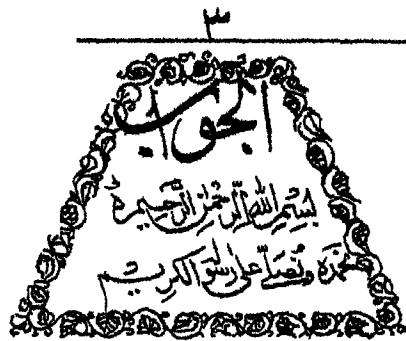 ٣
الجواب
بسم الله الرحمن الرحيم
نحمده ونصلي على رسوله الكريم